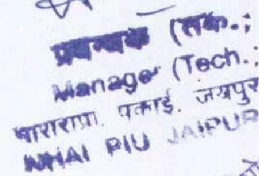 प्रबन्धक (तक.;
Manager (Tech.;
भाराराप्रा. पकाई. जयपुर
NHAI PIU JAIPUR